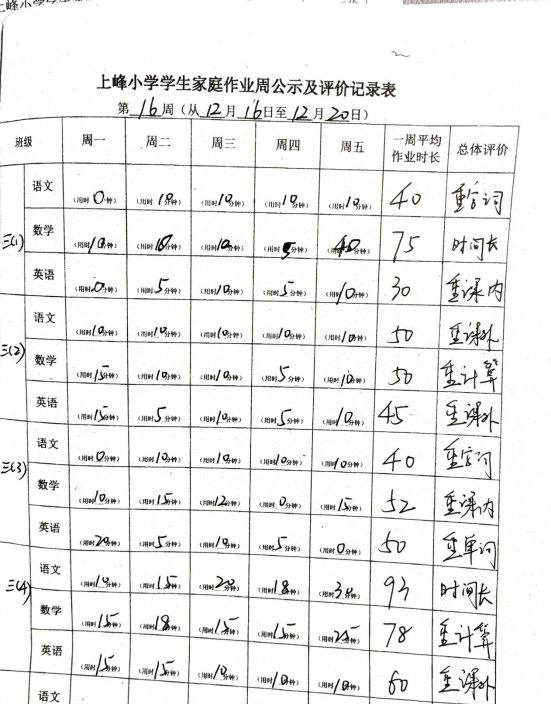 上峰小学学生家庭作业周公示及评价记录表
第 16 周（从 12 月 16 日至 12 月 20 日）
班级 周一 周二 周三 周四 周五 一周平均作业时长 总体评价
三(1) 语文 （用时 0 分钟） （用时 10 分钟） （用时 10 分钟） （用时 10 分钟） （用时 10 分钟） 40 重字词
数学 （用时 10 分钟） （用时 10 分钟） （用时 10 分钟） （用时 5 分钟） （用时 40 分钟） 75 时间长
英语 （用时 0 分钟） （用时 5 分钟） （用时 10 分钟） （用时 5 分钟） （用时 10 分钟） 30 重课内
三(2) 语文 （用时 10 分钟） （用时 10 分钟） （用时 10 分钟） （用时 10 分钟） （用时 10 分钟） 50 重课外
数学 （用时 15 分钟） （用时 10 分钟） （用时 10 分钟） （用时 5 分钟） （用时 10 分钟） 50 重计算
英语 （用时 15 分钟） （用时 5 分钟） （用时 10 分钟） （用时 5 分钟） （用时 10 分钟） 45 重课外
三(3) 语文 （用时 0 分钟） （用时 10 分钟） （用时 10 分钟） （用时 10 分钟） （用时 10 分钟） 40 重字词
数学 （用时 10 分钟） （用时 15 分钟） （用时 12 分钟） （用时 0 分钟） （用时 15 分钟） 52 重课内
英语 （用时 20 分钟） （用时 5 分钟） （用时 10 分钟） （用时 5 分钟） （用时 0 分钟） 50 重单词
三(4) 语文 （用时 10 分钟） （用时 15 分钟） （用时 20 分钟） （用时 18 分钟） （用时 30 分钟） 93 时间长
数学 （用时 15 分钟） （用时 18 分钟） （用时 15 分钟） （用时 15 分钟） （用时 25 分钟） 78 重计算
英语 （用时 15 分钟） （用时 15 分钟） （用时 10 分钟） （用时 10 分钟） （用时 10 分钟） 60 重课外
语文